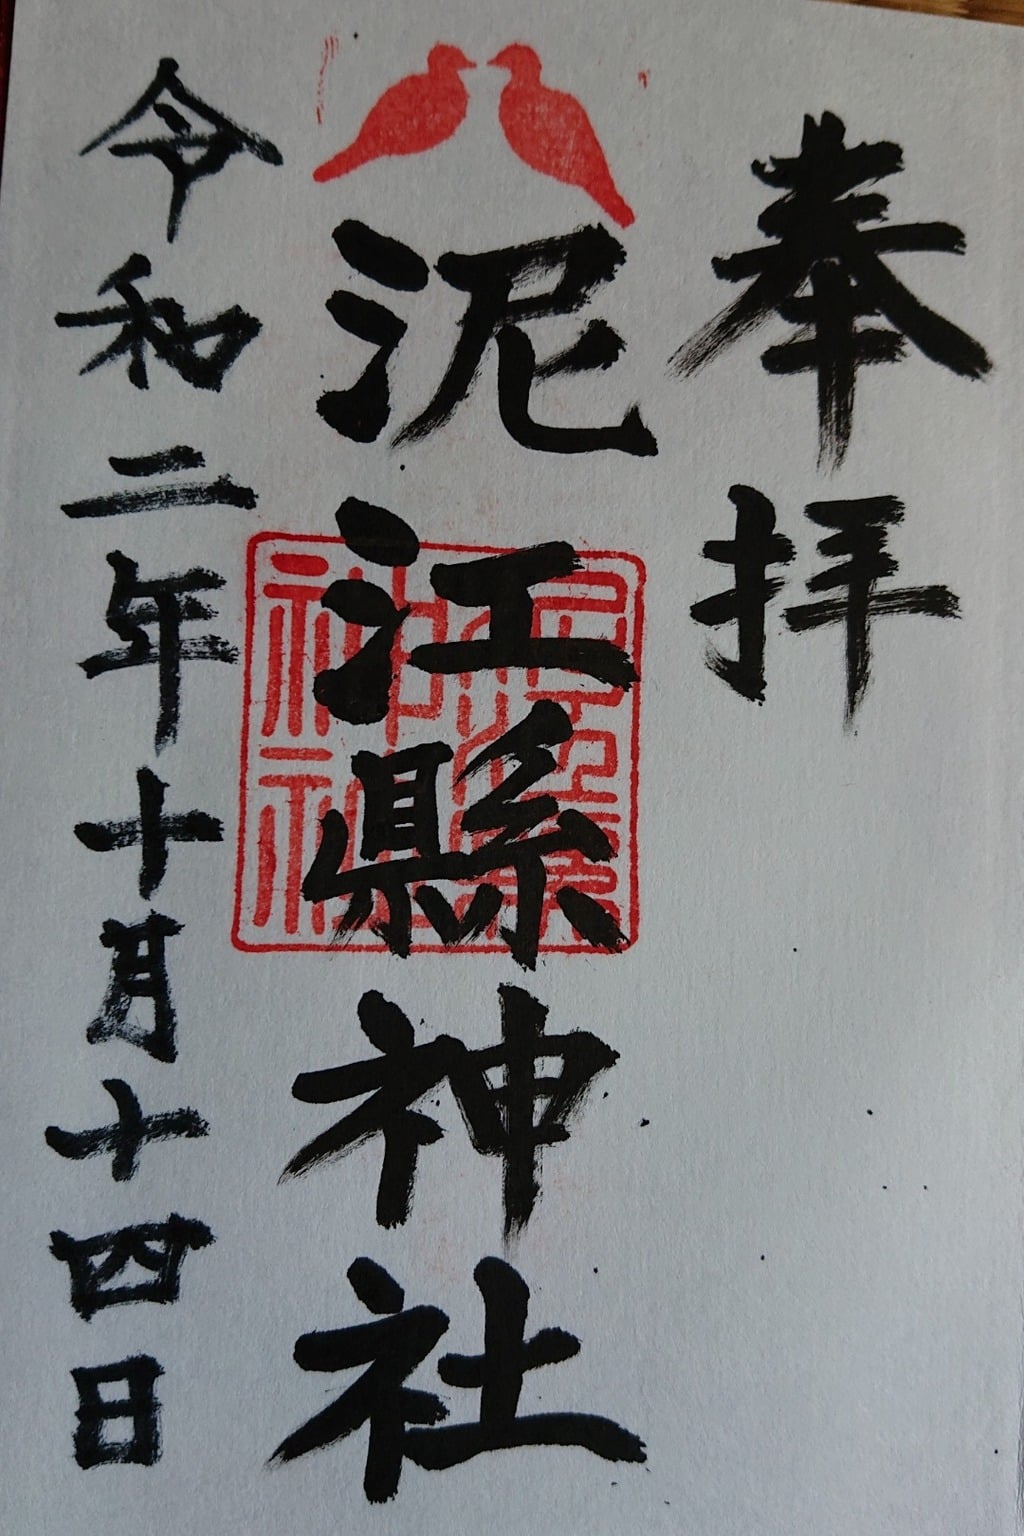 奉拝
泥江縣神社
令和二年十月十四日
泥江縣
神社